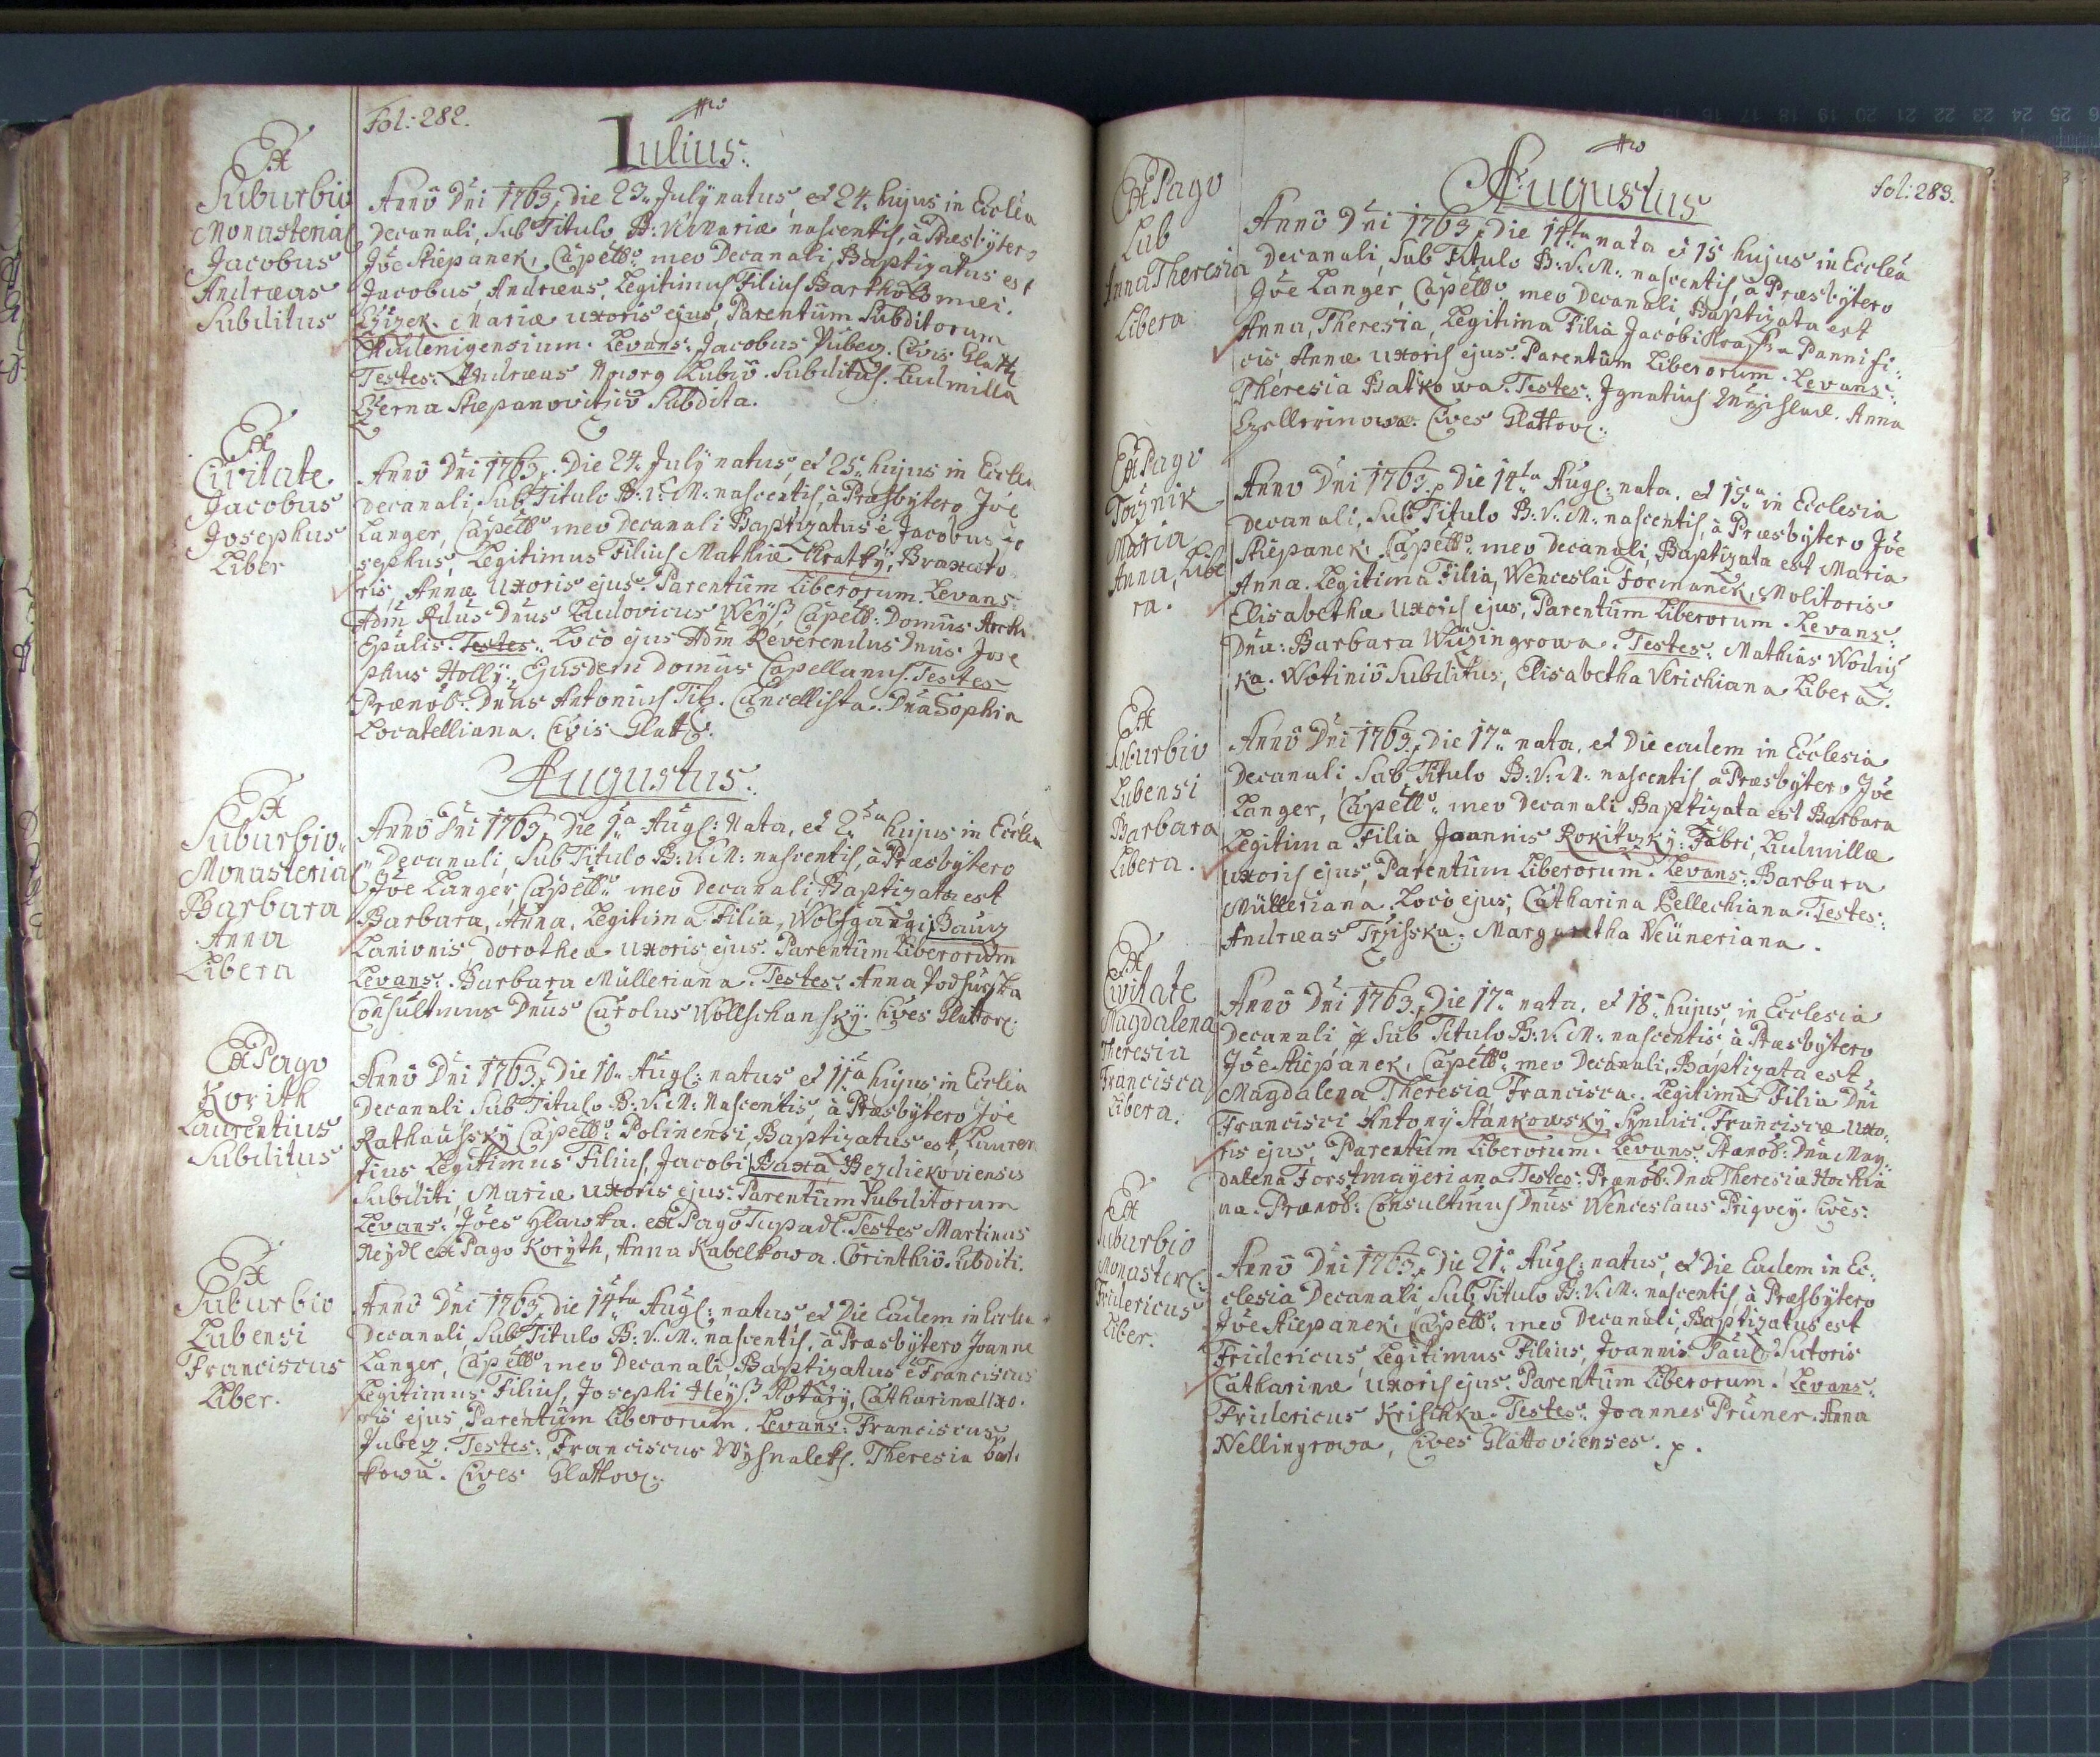 Fol: 282.
Iulius:
Ex
Suburbio
Monasterial
Jacobus
Andræas
Subditus
Anno Dni 1763, Die 23. July natus, et 24. hujus in Eccléa
Decanali, Sub Titulo B: V: Mariæ nascentis, à Præsbytero
Jõe Stiepanek, Capello meo Decanali, Baptizatus est
Jacobus, Andræas, Legitimus Filius Bartholomæi
Czizek. Mariæ uxoris ejus, Parentum Subditorum
Levans: Jacobus Civis Glatt
Testes: Andræas Lubio Subditus. Ludmilla
Subdita.
Ex
Civitate
Jacobus
Josephus
Liber
Anno Dni 1763. Die 24. July natus, et 25. hujus in Ecclea
Decanali, Sub Titulo B: V: M: nascentis, à Præsbytero Jõe
Langer, Capello meo Decanali Baptizatus e Jacobus Jo
sephus, Legitimus Filius Mathiæ Kratky, Braxato
ris, Annæ Uxoris ejus. Parentum Liberorum. Levans:
Adm Rdus Dnus Ludovicus Weyß, Capell: Domus Archi
Epalis. Testes: Loco ejus Adm Reverendus Dnus Jose
phus Holly: Ejusdem Domus Capellanus. Testes
Prænob: Dnus Antonius Titz. Cancellista. Dna Sophia
Locatelliana. Civis Glatt:
Augustus:
Ex
Suburbio
Monasterial
Barbara
Anna
Libera
Anno Dni 1763, Die 1a Aug: Nata, et 2da hujus in Ecclea
Decanali, Sub Titulo B: V: M: nascentis, à Præsbytero
Jõe Langer, Capello meo Decanali, Baptizata est
Barbara, Anna, Legitima Filia, Wolfgangi Bauz
Lanionis, Dorotheæ uxoris ejus. Parentum Liberorum
Levans: Barbara Mülleriana. Testes: Anna
Consultmus Dnus Carolus Wollschansky. Cives Glattov:
Ex Pago
Korith
Laurentius
Subditus
Anno Dni 1763, Die 10. Aug: natus et 11a hujus in Ecclia
Decanali Sub Titulo B: V: M: Nascentis, à Præsbytero Jõe
Rathaussky Capello Polinensi, Baptizatus est, Lauren
tius Legitimus Filius, Jacobi Baxa Bezdiekoviensis
Subditi, Mariæ uxoris ejus. Parentum Subditorum
Levans: Jões Hlawka. ex Pago Tupadl. Testes Martinus
Neydl ex Pago Koryth, Anna Kabelkowa. Corinthio. Subditi.
Ex
Suburbio
Lubensi
Franciscus
Liber.
Anno Dni 1763, Die 14ta Aug: natus, et Die Eadem in Ecclea
Decanali, Sub Titulo B: V: M: nascentis, à Præsbytero Joanne
Langer, Capello meo Decanali, Baptizatus e Franciscus
Legitimus Filius, Josephi Heyß. Rotary, Catharinæ Uxo.
ris ejus, Parentum Liberorum. Levans: Franciscus
Testes: Franciscus Theresia Bat
kowa. Cives Glattov:
fol: 283.
Augustus
Ex Pago
Lub
Anna Theresia
Libera
Anno Dni 1763, Die 14ta nata et 15 hujus in Ecclea
Decanali, Sub Titulo B: V: M: nascentis, à Præsbytero
Jõe Langer, Capello meo Decanali, Baptizata est
Anna, Theresia, Legitima Filia Jacobi Pannifi:
cis, Annæ uxoris ejus. Parentum Liberorum. Levans:
Theresia Batkowa. Testes: Ignatius Anna
Cives Glattov:
Ex Pago
Maria
Anna, Libe
ra.
Anno Dni 1763, Die 14ta Aug: nata, et 15a in Ecclesia
Decanali, Sub Titulo B: V: M: nascentis, à Præsbytero Jõe
Stiepanek, Capello meo Decanali, Baptizata est Maria
Anna. Legitima Filia, Wenceslai Formanek, Molitoris
Elisabethæ uxoris ejus, Parentum Liberorum. Levans:
Dna: Barbara Testes: Mathias Wodiž
ka. Wotinio Subditus, Elisabetha Verichiana Libera.
Ex
Suburbio
Lubensi
Barbara
Libera.
Anno Dni 1763, Die 17a nata, et Die eadem in Ecclesia
Decanali, Sub Titulo B: V: M: nascentis à Præsbytero Jõe
Langer, Capello meo Decanali Baptizata est Barbara
Legitima Filia Joannis Rokitzky: Fabri, Ludmillæ
uxoris ejus, Parentum Liberorum. Levans: Barbara
Mülleriana. Loco ejus, Catharina Pellechiana. Testes:
Andræas Margaretha Neüneriana.
Ex
Civitate
Magdalena
Theresia
Francisca
Libera.
Anno Dni 1763, Die 17a nata, et 18a hujus in Ecclesia
Decanali Sub Titulo B: V: M: nascentis à Præsbytero
Jõe Stiepanek, Capello meo Decanali, Baptizata est
Magdalena Theresia Francisca. Legitima Filia Dni
Francisci Antony Stankowsky, Syndici. Franciscæ Uxo:
ris ejus, Parentum Liberorum. Levans: Prænob: Dna Mag:
dalena Forstmayeriana. Testes: Prænob: Dna Theresia
na. Prænob: Consultmus Dnus Wenceslaus Prigvey. Cives:
Ex
Suburbio
Monaster:
Fridericus
Liber.
Anno Dni 1763, Die 21a Aug: natus, et Die Eadem in Ec:
clesia Decanali Sub Titulo B: V: M: nascentis, à Præsbytero
Jõe Stiepanek, Capello meo Decanali, Baptizatus est
Fridericus, Legitimus Filius, Joannis Paul Sutoris
Catharinæ uxoris ejus. Parentum Liberorum. Levans:
Fridericus Krischka. Testes: Joannes Pruner. Anna
Nellingrowa, Cives Glattovienses. p.